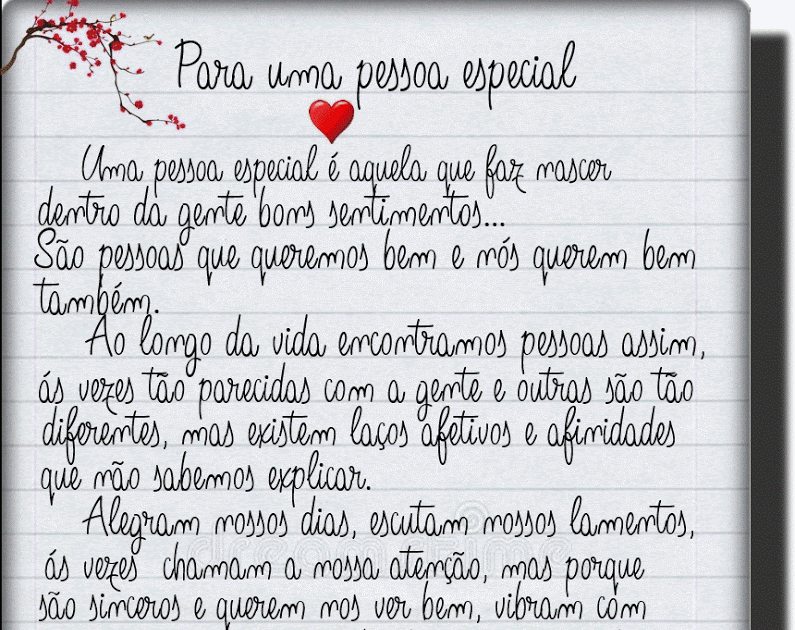 Para uma pessoa especial
Uma pessoa especial é aquela que faz nascer
dentro da gente bons sentimentos...
São pessoas que queremos bem e nós querem bem
também.
Ao longo da vida encontramos pessoas assim,
ás vezes tão parecidas com a gente e outras são tão
diferentes, mas existem laços afetivos e afinidades
que não sabemos explicar.
Alegram nossos dias, escutam nossos lamentos,
ás vezes chamam a nossa atenção, mas porque
são sinceros e querem nos ver bem, vibram com
dreamstime